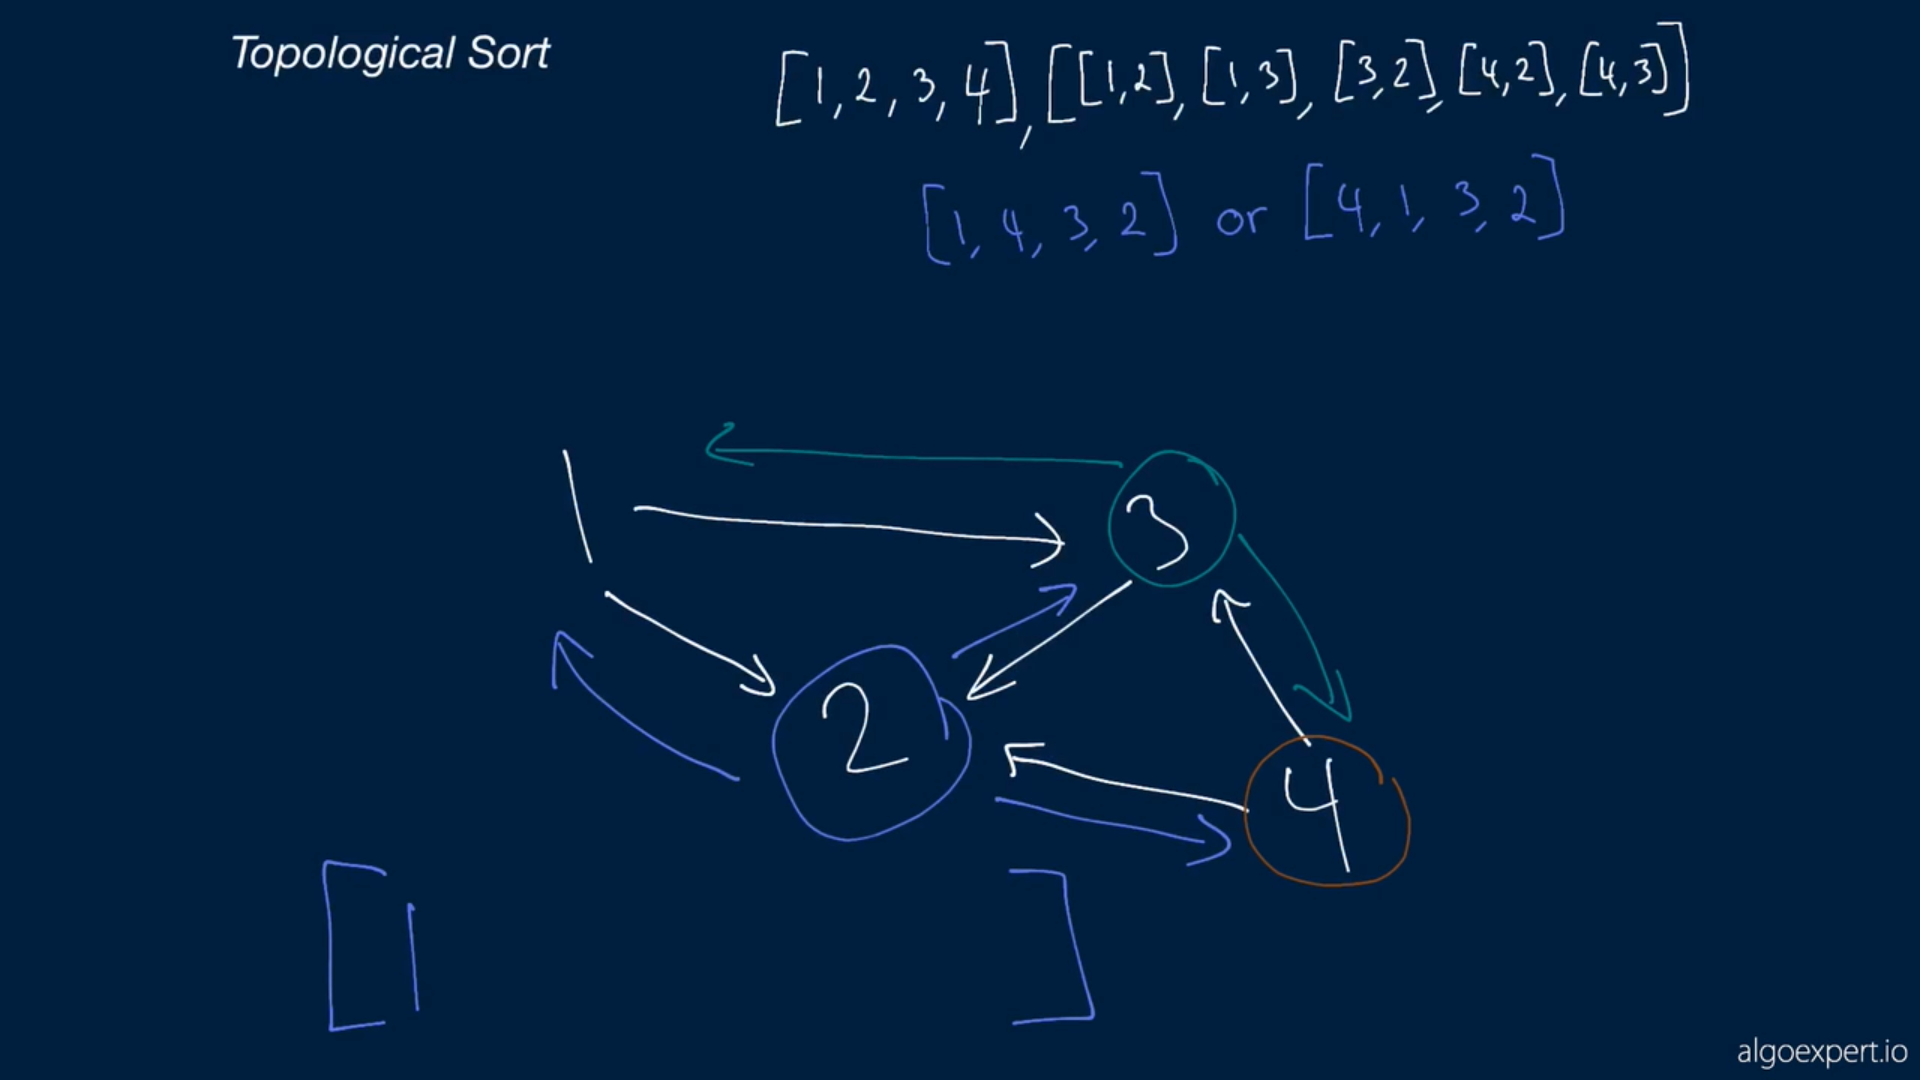 Topological Sort
[1, 2, 3, 4], [[1,2], [1,3], [3,2], [4,2], [4,3]]
[1, 4, 3, 2] or [4, 1, 3, 2]
1 3
2 4
[1 ]
algoexpert.io